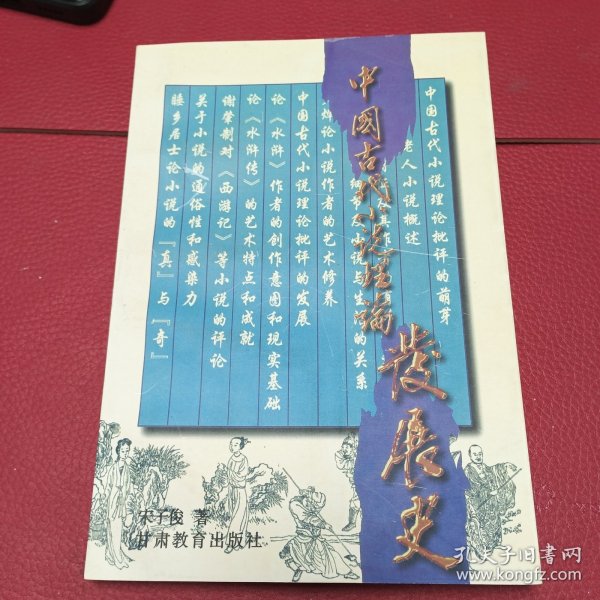 中國古代小说理論
發展史
中国古代小说理论批评的萌芽
老人小说概述
细节及小说与生
的关系
论小说作者的艺术修养
中国古代小说理论批评的发展
论《水浒》作者的创作意图和现实基础
论《水浒传》的艺术特点和成就
谢肇制对《西游记》等小说的评论
关于小说的通俗性和感染力
睡乡居士论小说的『真』与『奇』
宋子俊 著
甘肃教育出版社
孔夫子旧书网
www.kongfz.com